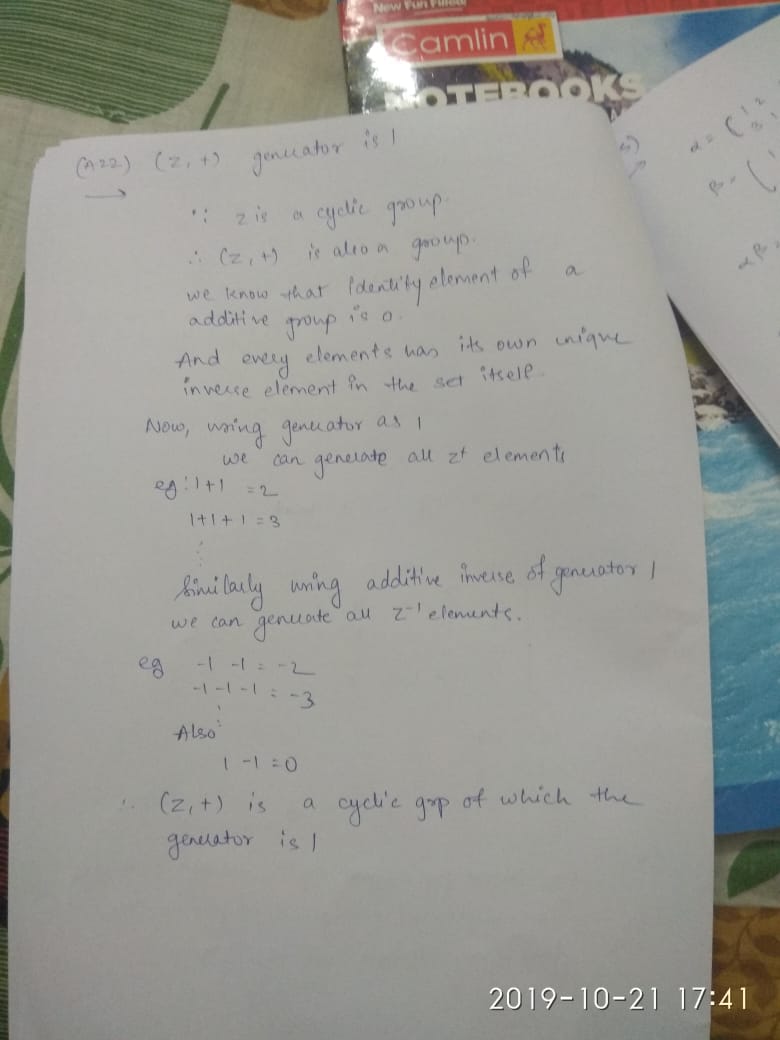 New Fun Filled
Camlin
NOTEBOOKS
(A22) (Z, +) generator is 1
∵ z is a cyclic group.
∴ (Z, +) is also a group.
we know that Identity element of a
additive group is 0.
And every elements has its own unique
inverse element in the set itself.
Now, using generator as 1
we can generate all z+ elements
eg: 1+1 = 2
1+1+1 = 3
Similarly using additive inverse of generator 1
we can generate all Z-1 elements.
eg -1 -1 = -2
-1 -1 -1 = -3
Also
1 -1 = 0
∴ (Z, +) is a cyclic grp of which the
generator is 1
α = ( 1 2
3 1
β = ( 1
αβ =
2019-10-21 17:41